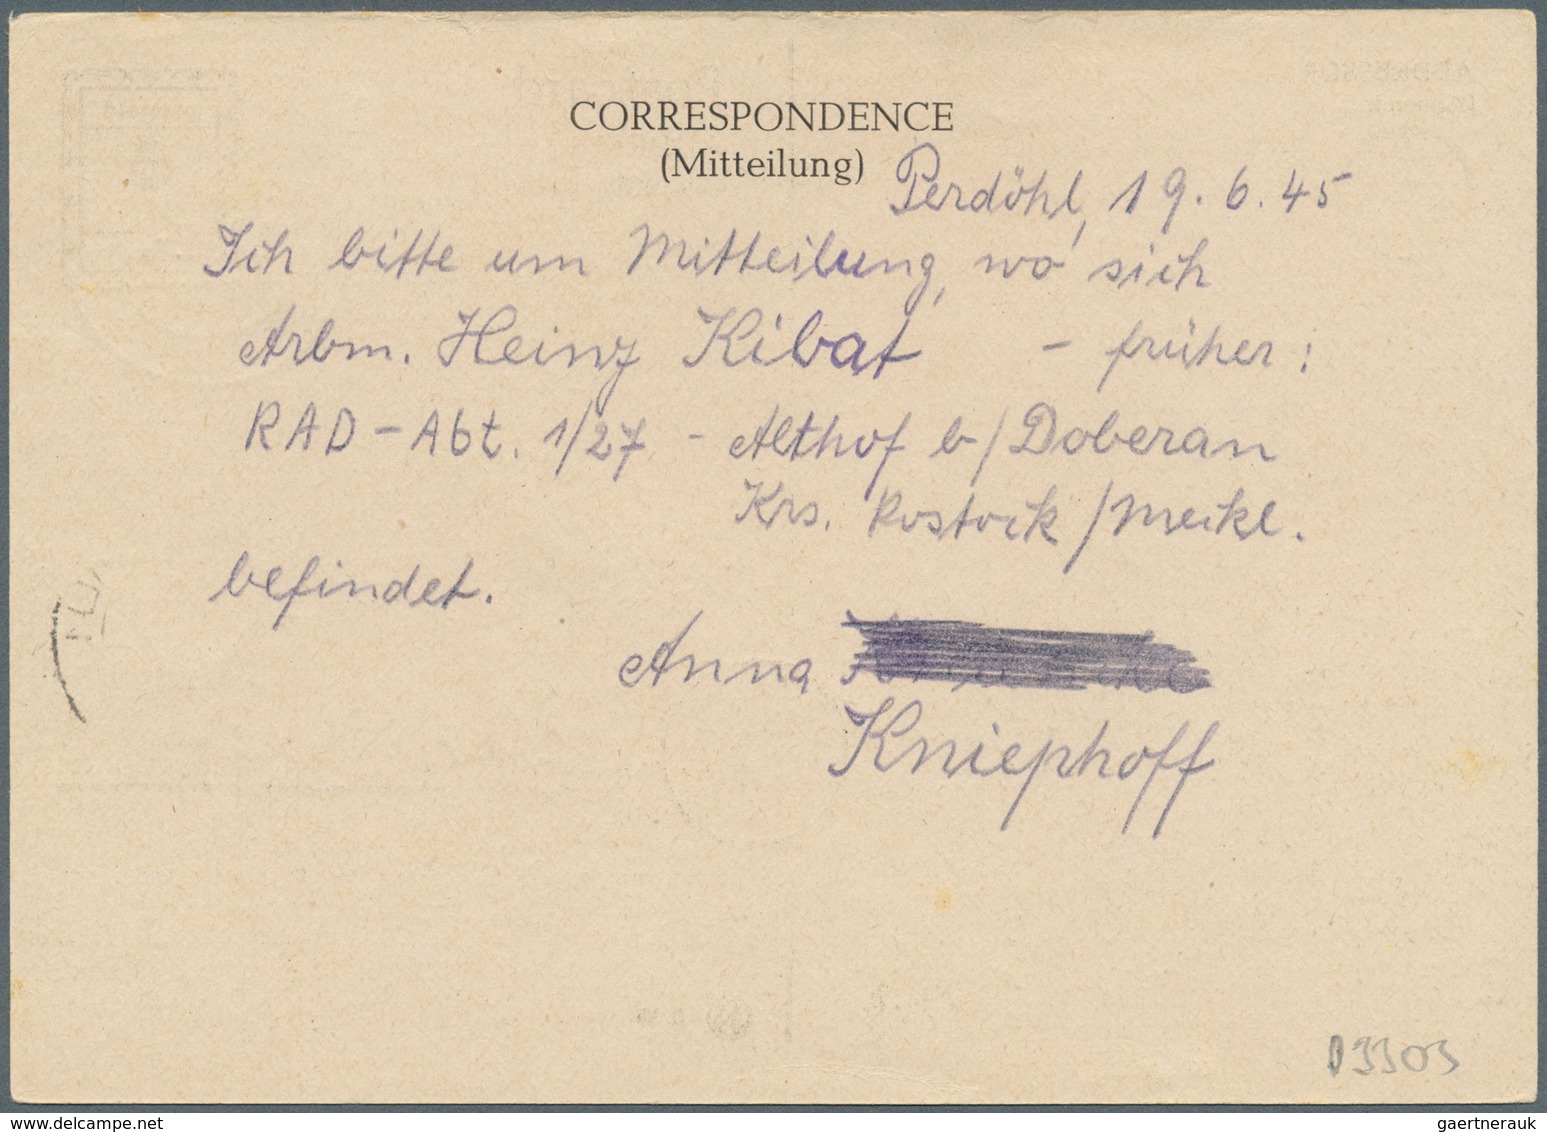 CORRESPONDENCE
(Mitteilung)
Perdöhl, 19.6.45
Ich bitte um Mitteilung, wo sich
Arbm. Heinz Kibat - früher:
RAD-Abt. 1/27 - Althof b/Doberan
Krs. Rostock/Meckl.
befindet.
Anna
Kniephoff
03303
gaertnerauk